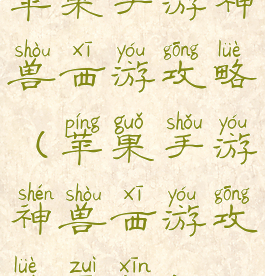 苹果手游神
shòu xī yóu gōng lüè
兽西游攻略
píng guǒ shǒu yóu
（苹果手游
shén shòu xī yóu gōng
神兽西游攻
lüè zuì xīn